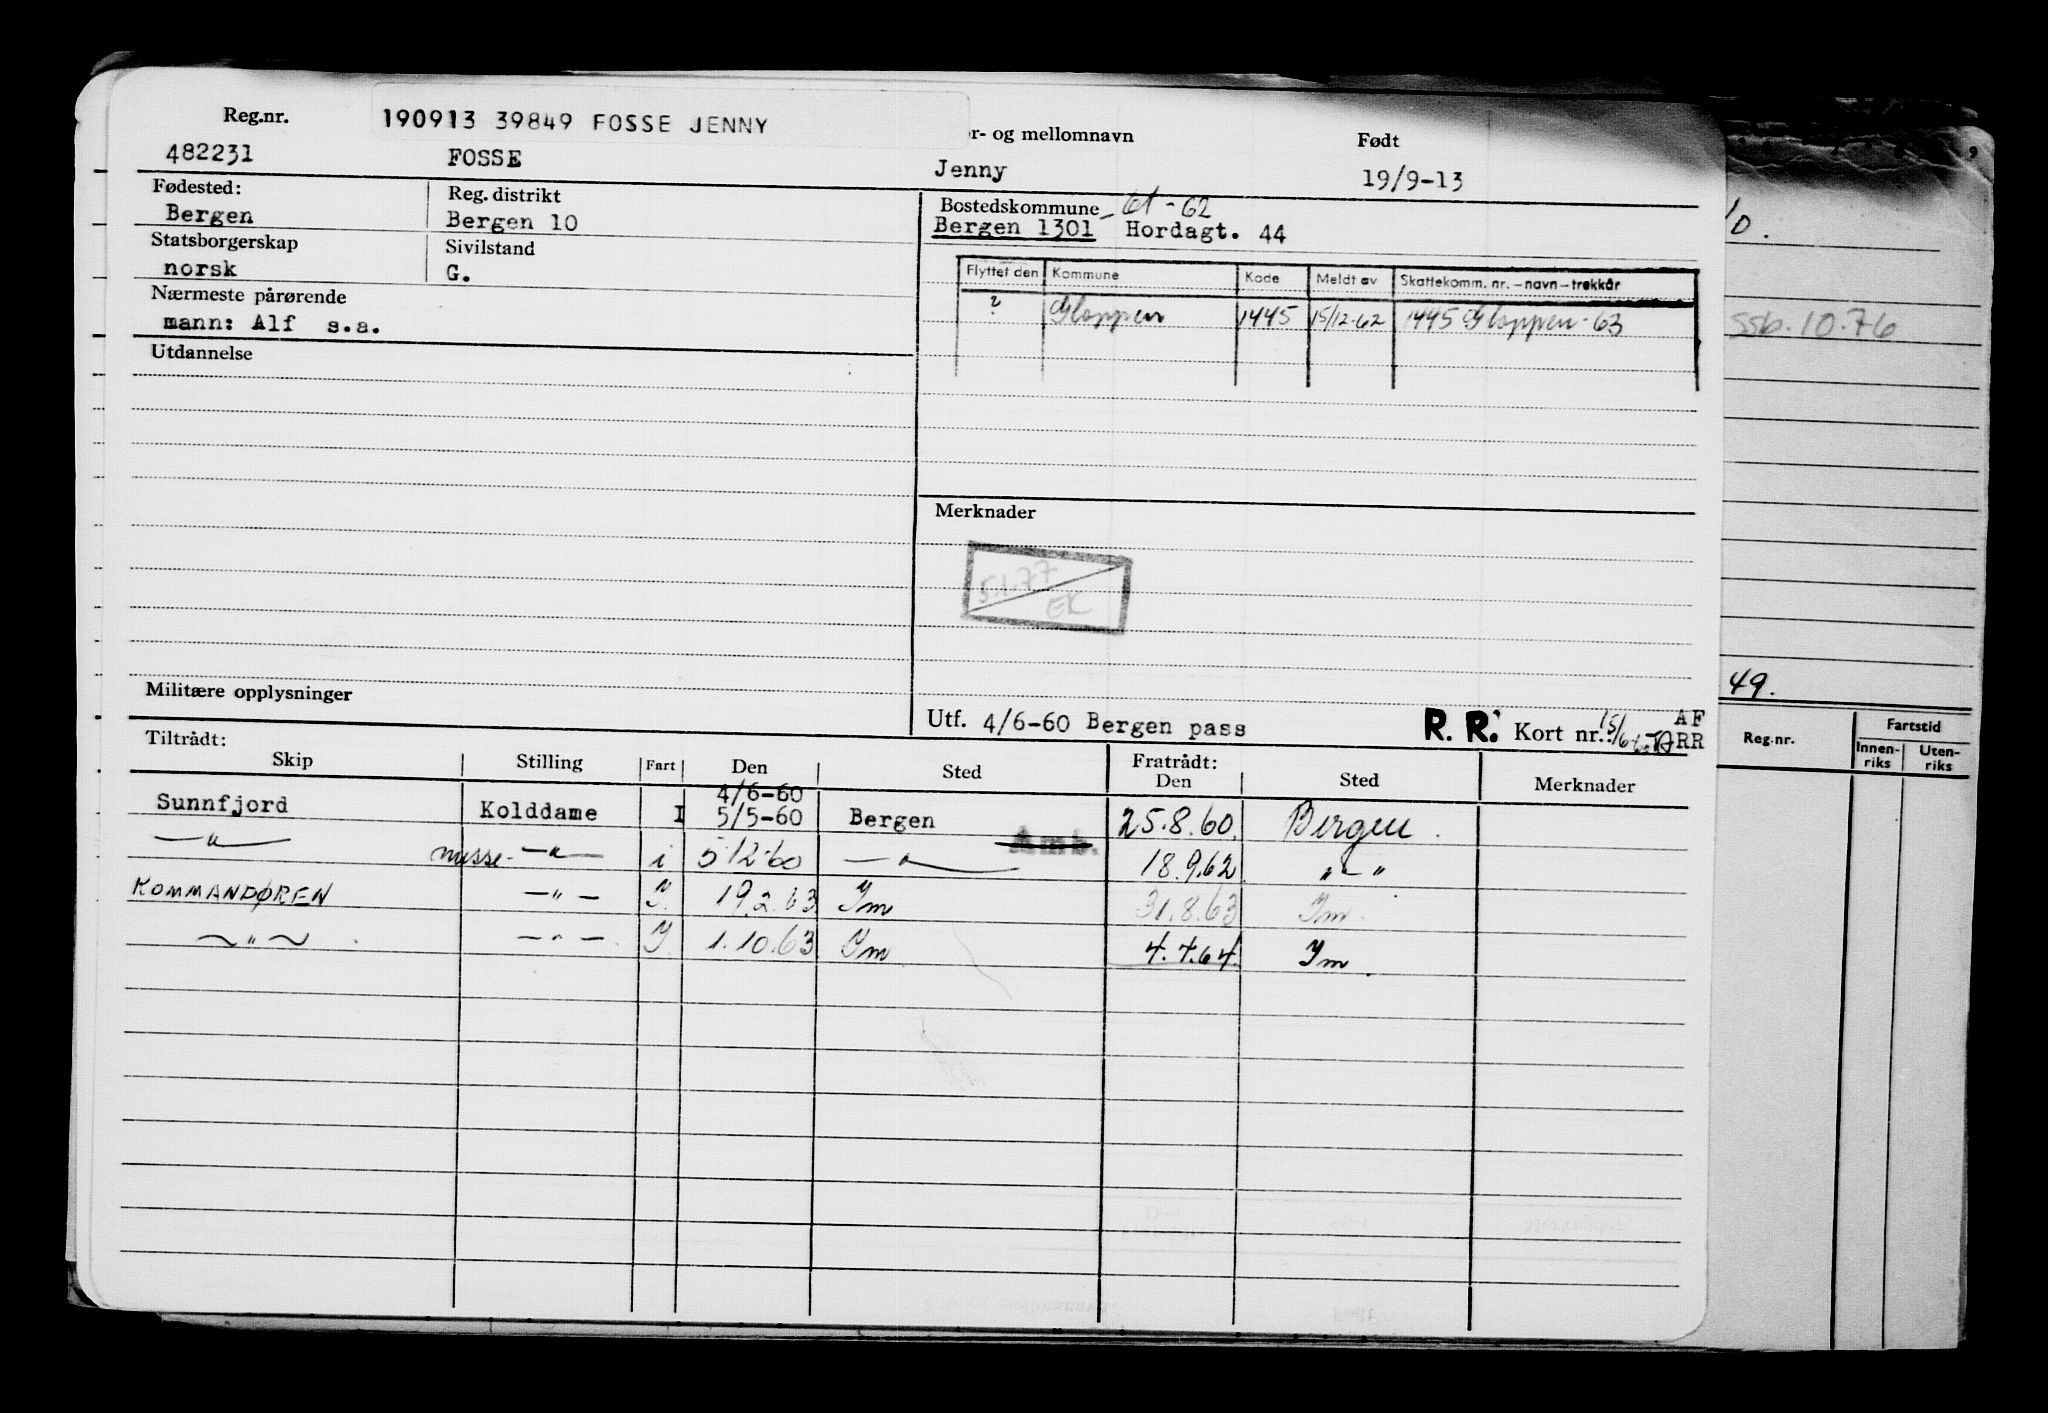 Reg.nr. 190913 39849 FOSSE JENNY r- og mellomnavn Født
482231 FOSSE Jenny 19/9-13
Fødested: Reg. distrikt Bostedskommune - 61 - 62
Bergen Bergen 10 Bergen 1301 Hordagt. 44
Statsborgerskap Sivilstand
norsk G.
Flyttet den Kommune Kode Meldt av Skattekomm. nr. – navn – trekkår
? Gloppen 1445 15/12-62 1445 Gloppen - 63
Nærmeste pårørende
mann: Alf s.a.
Utdannelse
Merknader
5.1.77
EK
Militære opplysninger
Utf. 4/6-60 Bergen pass R. R. Kort nr.: AF
RR
Tiltrådt: Fratrådt:
Skip Stilling Fart Den Sted Den Sted Merknader
4/6-60
Sunnfjord Kolddame I 5/5-60 Bergen 25.8.60. Bergen.
Amb.
— " — messe- — " — i 5/12-60 — " — 18.9.62 " - "
KOMMANDØREN — " — Y. 19.2.63 Ym 31.8.63 Ym.
~ " ~ — " — Y 1.10.63 Ym 4.4.64. Ym.
10.
ssb. 10.76
49.
Reg.nr. Fartstid
Innen-
riks
Uten-
riks